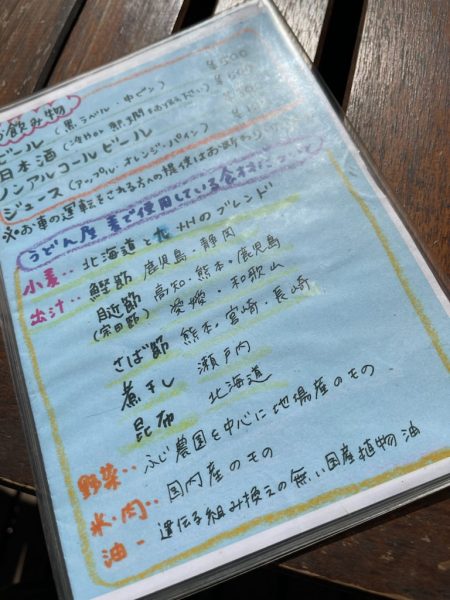 お飲み物
ビール (黒ラベル・中ビン) ¥500
日本酒 (冷やか熱燗をお選び下さい)
ノンアルコールビール
ジュース (アップル、オレンジ・パイン)
※お車の運転をされる方への提供はお断り
うどん屋 麦で使用している食材について
小麦・・ 北海道と九州のブレンド
出汁・・ 鰹節 鹿児島・静岡
目近節 高知・熊本・鹿児島
(宗田節) 愛媛・和歌山
さば節 熊本・宮崎・長崎
煮干し 瀬戸内
昆布 北海道
野菜・・ ふじ農園を中心に地場産のもの
米・肉・・ 国内産のもの
油・・ 遺伝子組み換えの無い国産植物油